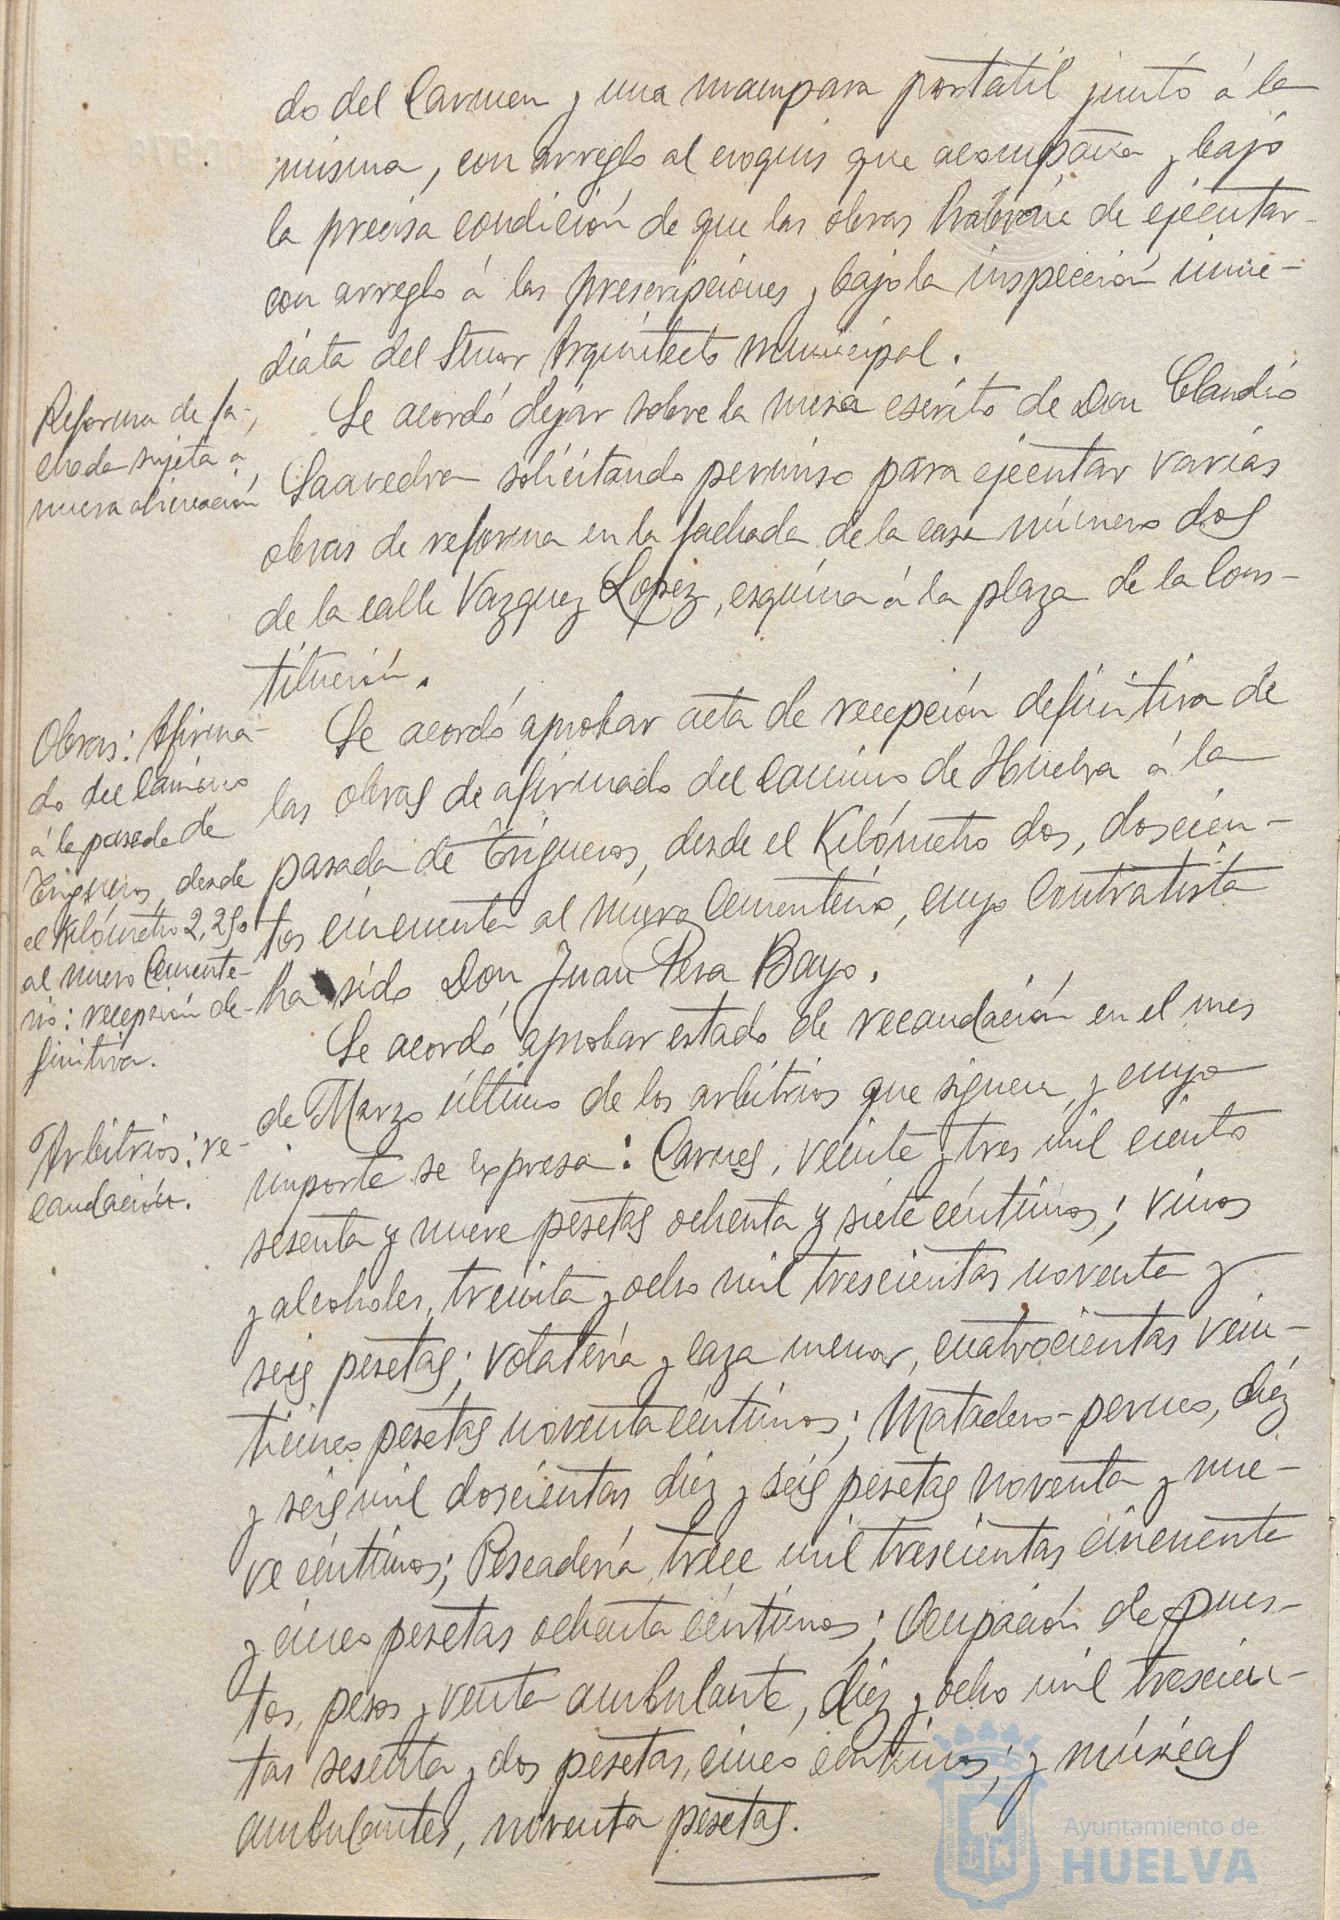 do del Carmen y una mampara portátil junto á la
misma, con arreglo al croquis que acompaña y bajo
la precisa condición de que las obras habrán de ejecutar-
con arreglo á las prescripciones y bajo la inspección inme-
diata del Señor Arquitecto municipal.
Reforma de fa-
chada sujeta a
nueva alineación
Se acordó dejar sobre la mesa escrito de Don Claudio
Saavedra solicitando permiso para ejecutar varias
obras de reforma en la fachada de la casa número dos
de la calle Vazquez Lopez, esquina á la plaza de la Cons-
titución.
Obras: Afirma-
do del Camino
á la pasada de
Trigueros, desde
el Kilómetro 2,250
al nuevo Cemente-
rio: recepción de-
finitiva.
Se acordó aprobar acta de recepción definitiva de
las obras de afirmado del Camino de Huelva á la
pasada de Trigueros, desde el Kilómetro dos, doscien-
tos cincuenta al nuevo Cementerio, cuyo Contratista
ha sido Don Juan Pera Bayo.
Arbitrios: re-
caudación.
Se acordó aprobar estado de recaudación en el mes
de Marzo último de los arbitrios que siguen, y cuyo
importe se expresa: Carnes, veinte y tres mil ciento
sesenta y nueve pesetas ochenta y siete céntimos; vinos
y alcoholes, treinta y ocho mil trescientas noventa y
seis pesetas; volatería y caza menor, cuatrocientas vein-
ticinco pesetas noventa céntimos; Matadero-perneo, diez
y seis mil doscientas diez y seis pesetas noventa y nue-
ve céntimos; Pescadería, trece mil trescientas cincuenta
y cinco pesetas ochenta céntimos; Ocupación de pues-
tos, pesos y venta ambulante, diez y ocho mil trescien-
tas sesenta y dos pesetas, cinco céntimos; y músicas
ambulantes, noventa pesetas.
Ayuntamiento de
HUELVA